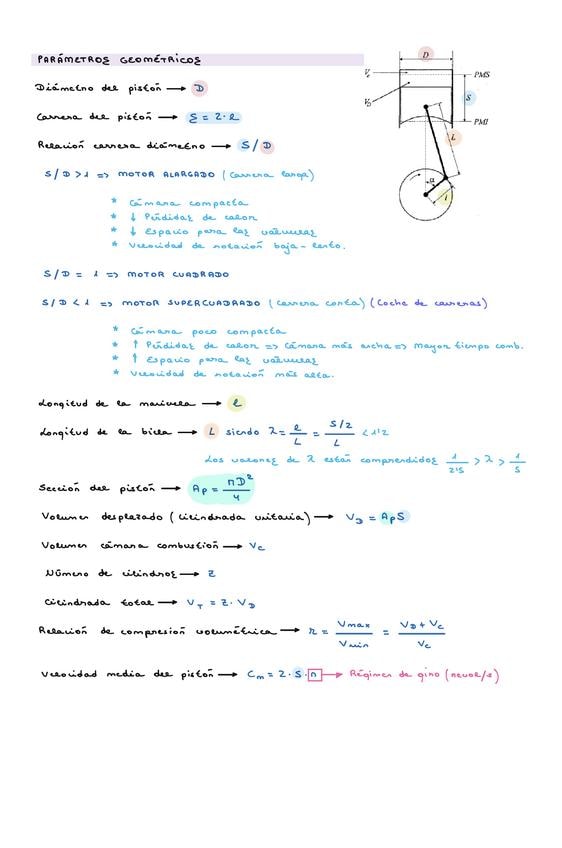 PARÁMETROS GEOMÉTRICOS
Diámetro del pistón → D
Carrera del pistón → S = 2·l
Relación carrera diámetro → S/D
S/D > 1 => MOTOR ALARGADO (carrera larga)
* Cámara compacta
* ↓ Pérdidas de calor
* ↓ Espacio para las válvulas
* Velocidad de rotación baja-lento.
S/D = 1 => MOTOR CUADRADO
S/D < 1 => MOTOR SUPERCUADRADO (carrera corta) (coche de carreras)
* Cámara poco compacta
* ↑ Pérdidas de calor => Cámara más ancha => Mayor tiempo comb.
* ↑ Espacio para las válvulas
* Velocidad de rotación más alta.
Longitud de la manivela → l
Longitud de la biela → L siendo λ = l/L = (S/2)/L < 1'2
Los valores de λ están comprendidos 1/2'5 > λ > 1/5
Sección del pistón → Ap = πD²/4
Volumen desplazado (cilindrada unitaria) → V_D = ApS
Volumen cámara combustión → Vc
Número de cilindros → z
Cilindrada total → V_T = z·V_D
Relación de compresión volumétrica → r = Vmax/Vmin = (V_D + Vc)/Vc
Velocidad media del pistón → Cm = 2·S·n → Régimen de giro (revol/s)
D
Vc
PMS
V_D
S
PMI
L
α
l